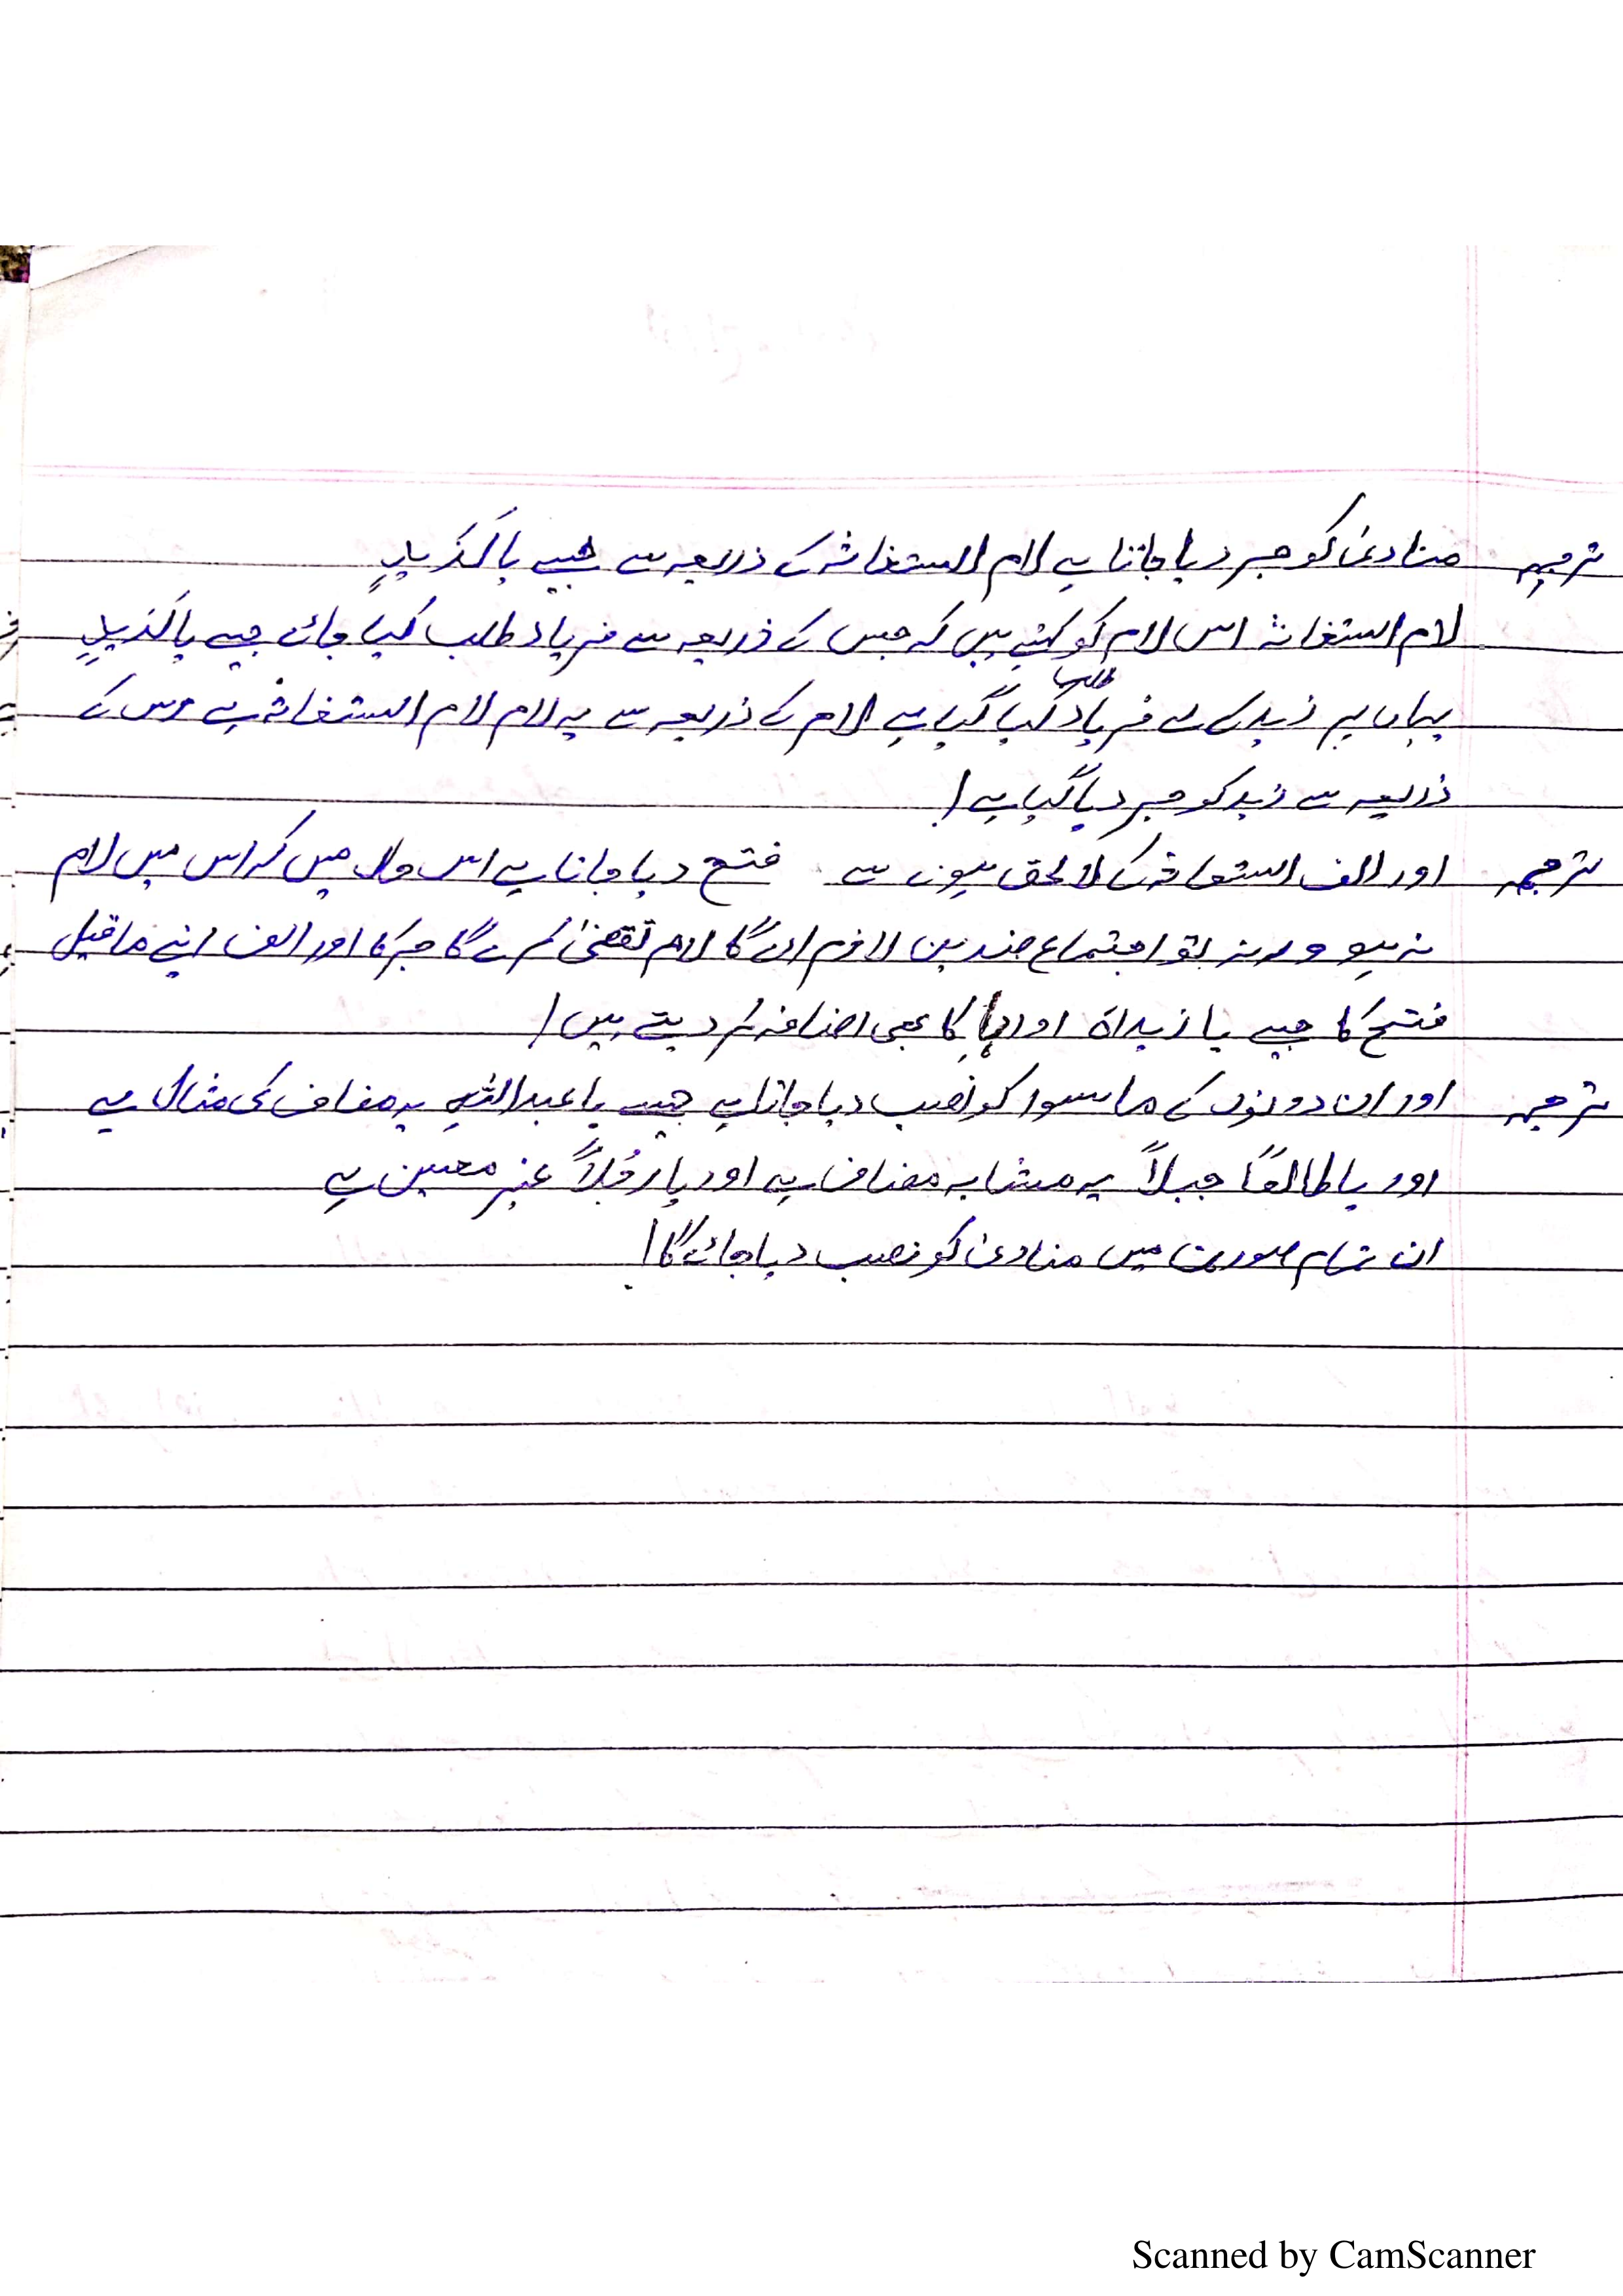 ترجمہ منادیٰ کو جر دیا جاتا ہے لام الاستغاثہ کے ذریعہ سے جیسے یا لَزَیدٍ
لام استغاثہ اس لام کو کہتے ہیں کہ جس کے ذریعہ سے فریاد طلب کیا جائے جیسے یا لَزیدٍ
یہاں پر زید کے لے فریاد طلب کیا گیا ہے لام کے ذریعہ سے یہ لام لام استغاثہ ہے اس کے
ذریعہ سے زید کو جر دیا گیا ہے!
ترجمہ اور الف استغاثہ کے لاحق ہونے سے فتح دیا جاتا ہے اس حال میں کہ اس میں لام
نہ ہو ورنہ تو اجتماع ضدین لازم ائے گا لام تقضیٰ کرے گا جر کا اور الف اپنے ماقبل
فتح کا جیسے یا زیداہ اور ہا کا بھی اضافہ کر دیتے ہیں!
ترجمہ اور ان دونوں کی ماسوا کو نصب دیا جاتا ہے جیسے یا عبداللّٰہِ یہ مضاف کی مثال ہے
اور یا طالعًا جبلاً یہ مشابہ مضاف ہے اور یا رجُلاً غیر معین ہے
ان تمام صورت میں منادیٰ کو نصب دیا جائے گا!
Scanned by CamScanner